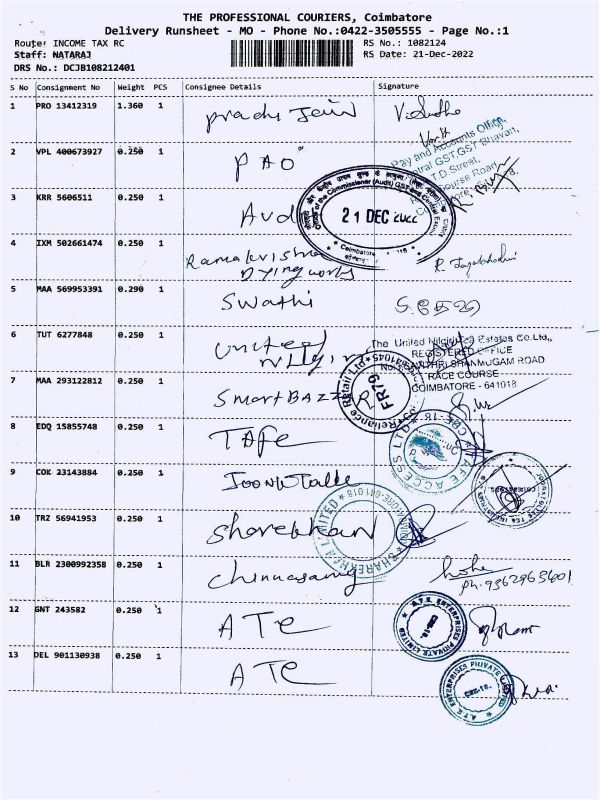 THE PROFESSIONAL COURIERS, Coimbatore
Delivery Runsheet - MO - Phone No.:0422-3505555 - Page No.:1
Route: INCOME TAX RC RS No.: 1082124
Staff: NATARAJ RS Date: 21-Dec-2022
DRS No.: DCJB108212401
S No Consignment No Weight PCS Consignee Details Signature
1 PRO 13412319 1.360 1 Jain V.Sudha
Pay and Accounts Office,
GST, GST Bhavan,
2 VPL 400673927 0.250 1 PAO
3 KRR 5606511 0.250 1 Aud
Office of the Commissioner (Audit) GST and Central
21 DEC 2022
Coimbatore
4 IXM 502661474 0.250 1 Ramakrishna
Dying works
5 MAA 569953391 0.290 1 Swathi
6 TUT 6277848 0.250 1 United
Nilgiri
The United Nilgiri Tea Estates Co.Ltd.,
REGISTERED OFFICE
SHANMUGAM ROAD
RACE COURSE
COIMBATORE - 641018
7 MAA 293122812 0.250 1 Smart Bazzar
Reliance Retail Ltd
FR79
8 EDQ 15855748 0.250 1 Tafe
TAFE ACCESS LTD
9 COK 23143884 0.250 1
10 TRZ 56941953 0.250 1 Sharekhan
SHAREKHAN LIMITED
11 BLR 2300992358 0.250 1 Chinnasamy
Ph. 9362963601
12 GNT 243582 0.250 1 ATE
A.T.E. ENTERPRISES PRIVATE LIMITED
CBE-18.
13 DEL 901130938 0.250 1 ATE
A.T.E. ENTERPRISES PRIVATE LIMITED
CBE-18.